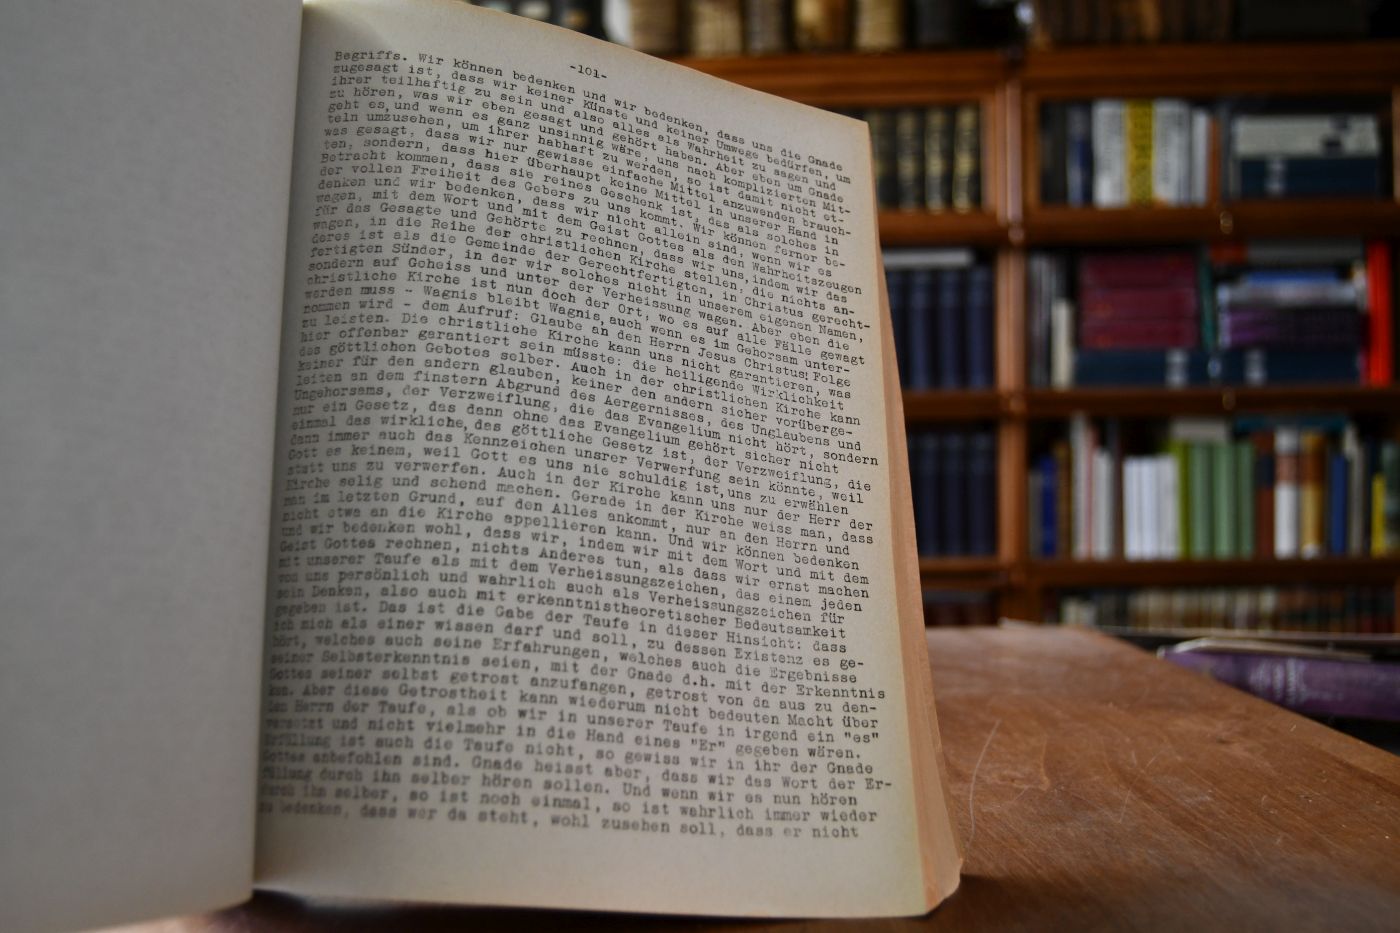 -101-
Begriffs. Wir können bedenken und wir bedenken, dass uns die Gnade
zugesagt ist, dass wir keiner Künste und keiner Umwege bedürfen, um
ihrer teilhaftig zu sein und also alles als Wahrheit zu sagen und
zu hören, was wir eben gesagt und gehört haben. Aber eben um Gnade
geht es, und wenn es ganz unsinnig wäre, uns nach komplizierten Mit-
teln umzusehen, um ihrer habhaft zu werden, so ist damit nicht et-
was gesagt, dass wir nur gewisse einfache Mittel anzuwenden brauch-
ten, sondern, dass hier überhaupt keine Mittel in unserer Hand in
Betracht kommen, dass sie reines Geschenk ist, das als solches in
der vollen Freiheit des Gebers zu uns kommt. Wir können ferner be-
denken und wir bedenken, dass wir nicht allein sind, wenn wir es
wagen, mit dem Wort und mit dem Geist Gottes als den Wahrheitszeugen
für das Gesagte und Gehörte zu rechnen, dass wir uns, indem wir das
wagen, in die Reihe der christlichen Kirche stellen, die nichts an-
deres ist als die Gemeinde der Gerechtfertigten, in Christus gerecht-
fertigten Sünder, in der wir solches nicht in unserem eigenen Namen,
sondern auf Geheiss und unter der Verheissung wagen. Aber eben die
christliche Kirche ist nun doch der Ort, wo es auf alle Fälle gewagt
werden muss - Wagnis bleibt Wagnis, auch wenn es im Gehorsam unter-
nommen wird - dem Aufruf: Glaube an den Herrn Jesus Christus! Folge
zu leisten. Die christliche Kirche kann uns nicht garantieren, was
hier offenbar garantiert sein müsste: die heiligende Wirklichkeit
des göttlichen Gebotes selber. Auch in der christlichen Kirche kann
keiner für den andern glauben, keiner den andern sicher vorüberge-
leiten an dem finstern Abgrund des Aergernisses, des Unglaubens und
Ungehorsams, der Verzweiflung, die das Evangelium nicht hört, sondern
nur ein Gesetz, das dann ohne das Evangelium gehört sicher nicht
einmal das wirkliche, das göttliche Gesetz ist, der Verzweiflung, die
dann immer auch das Kennzeichen unsrer Verwerfung sein könnte, weil
Gott es keinem, weil Gott es uns nie schuldig ist, uns zu erwählen
statt uns zu verwerfen. Auch in der Kirche kann uns nur der Herr der
Kirche selig und sehend machen. Gerade in der Kirche weiss man, dass
man im letzten Grund, auf den Alles ankommt, nur an den Herrn und
nicht etwa an die Kirche appellieren kann. Und wir können bedenken
und wir bedenken wohl, dass wir, indem wir mit dem Wort und mit dem
Geist Gottes rechnen, nichts Anderes tun, als dass wir ernst machen
mit unserer Taufe als mit dem Verheissungszeichen, das einem jeden
von uns persönlich und wahrlich auch als Verheissungszeichen für
sein Denken, also auch mit erkenntnistheoretischer Bedeutsamkeit
gegeben ist. Das ist die Gabe der Taufe in dieser Hinsicht: dass
ich mich als einer wissen darf und soll, zu dessen Existenz es ge-
hört, welches auch seine Erfahrungen, welches auch die Ergebnisse
seiner Selbsterkenntnis seien, mit der Gnade d.h. mit der Erkenntnis
Gottes seiner selbst getrost anzufangen, getrost von da aus zu den-
ken. Aber diese Getrostheit kann wiederum nicht bedeuten Macht über
den Herrn der Taufe, als ob wir in unserer Taufe in irgend ein "es"
versetzt und nicht vielmehr in die Hand eines "Er" gegeben wären.
Erfüllung ist auch die Taufe nicht, so gewiss wir in ihr der Gnade
Gottes anbefohlen sind. Gnade heisst aber, dass wir das Wort der Er-
füllung durch ihn selber hören sollen. Und wenn wir es nun hören
durch ihn selber, so ist noch einmal, so ist wahrlich immer wieder
zu bedenken, dass wer da steht, wohl zusehen soll, dass er nicht